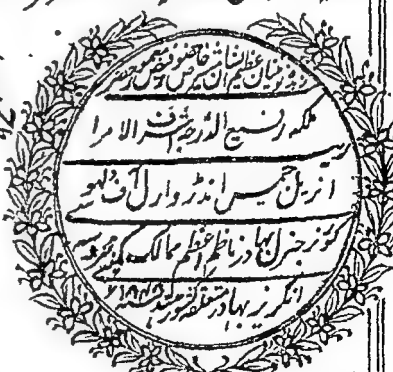 زبده نوئینان عظیم الشان مشیر خاص حضور فیض معمور حضرت
ملکه رفیع الدرجه اشرف الامرا
انریبل جیمس انڈر وارل آف ڈلهوسی
گورنر جنرل بهادر ناظم اعظم ممالک محروسه کمپنی
انگریز بهادر متعلقه کشور هند ۱۸۴۸